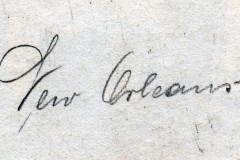 New Orleans